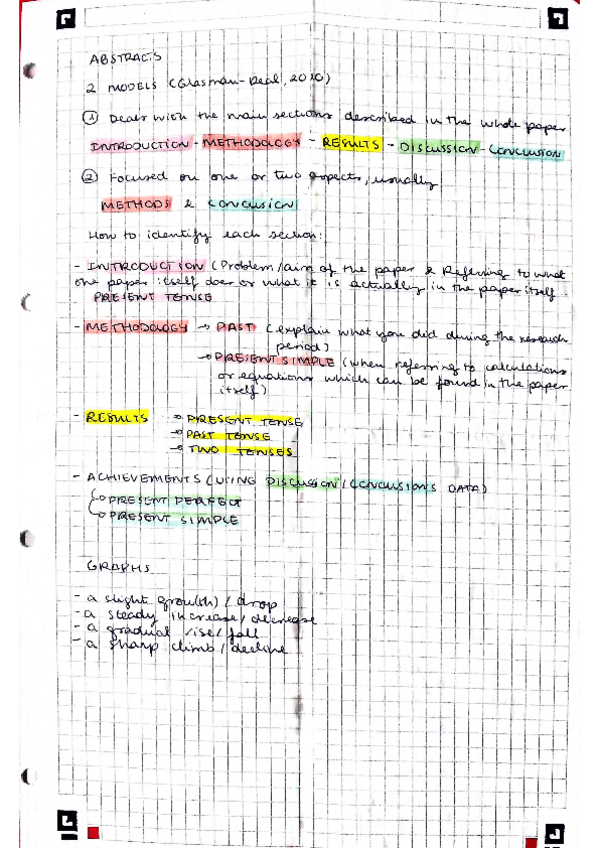 ABSTRACTS
2 MODELS (Glasman-Deal, 2010)
① Deals with the main sections described in the whole paper
INTRODUCTION - METHODOLOGY - RESULTS - DISCUSSION - CONCLUSION
② Focused on one or two aspects, usually
METHODS & CONCLUSION
How to identify each section:
- INTRODUCTION (Problem/aim of the paper & Referring to what
one paper itself does or what it is actually in the paper itself.
PRESENT TENSE
- METHODOLOGY → PAST (explain what you did during the research
period)
→ PRESENT SIMPLE (when referring to calculations
or equations which can be found in the paper
itself)
- RESULTS → PRESENT TENSE
→ PAST TENSE
→ TWO TENSES
- ACHIEVEMENTS (USING DISCUSSION / CONCLUSIONS DATA)
→ PRESENT PERFECT
→ PRESENT SIMPLE
GRAPHS
- a slight grow(th) / drop
- a steady increase / decrease
- a gradual rise / fall
- a sharp climb / decline